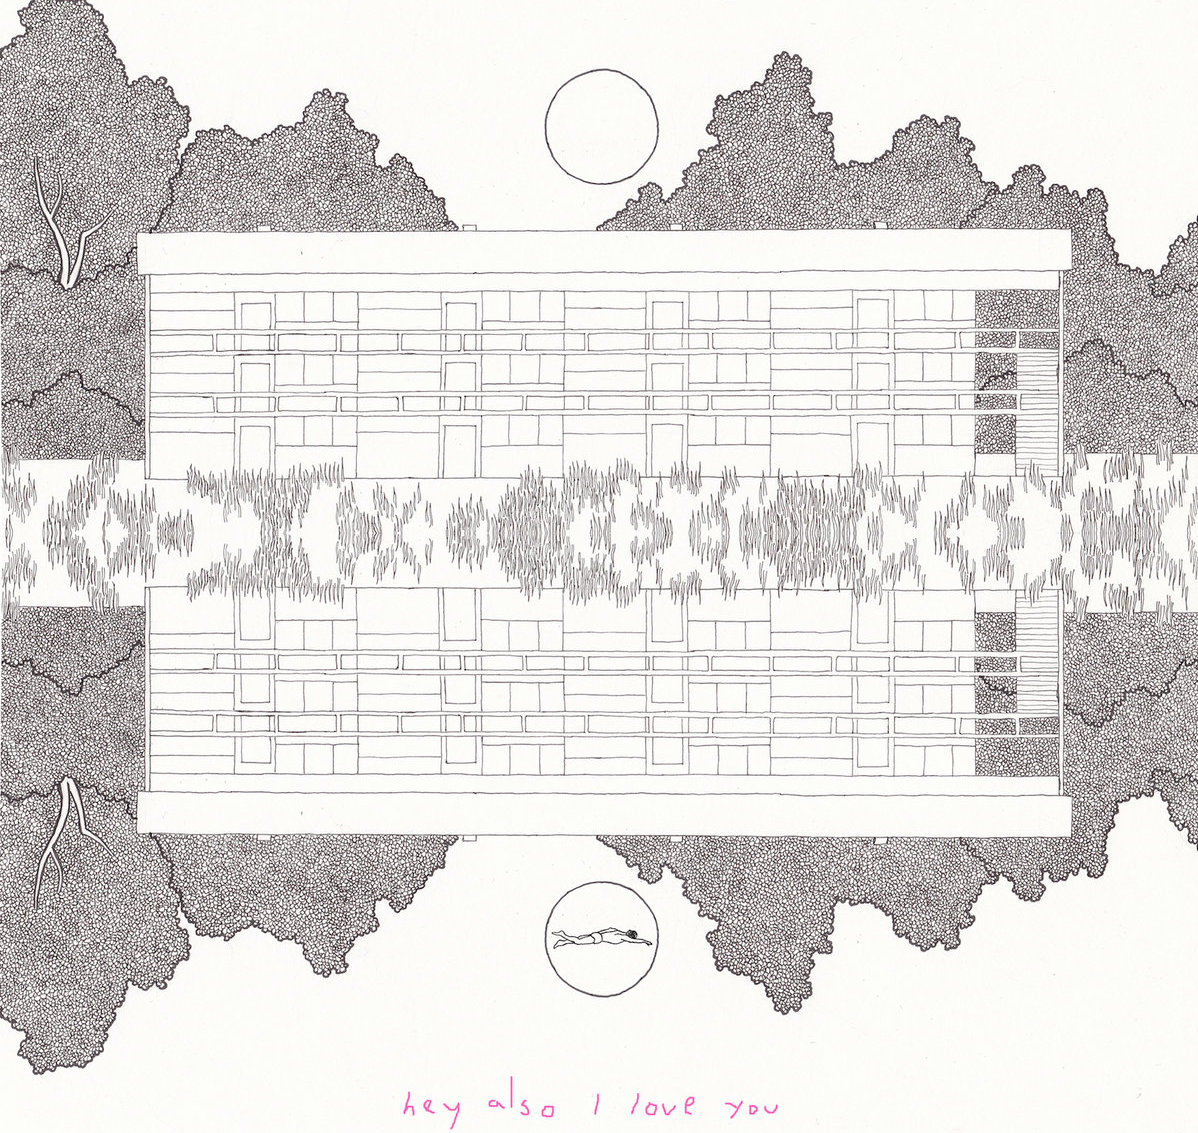 hey also I love you